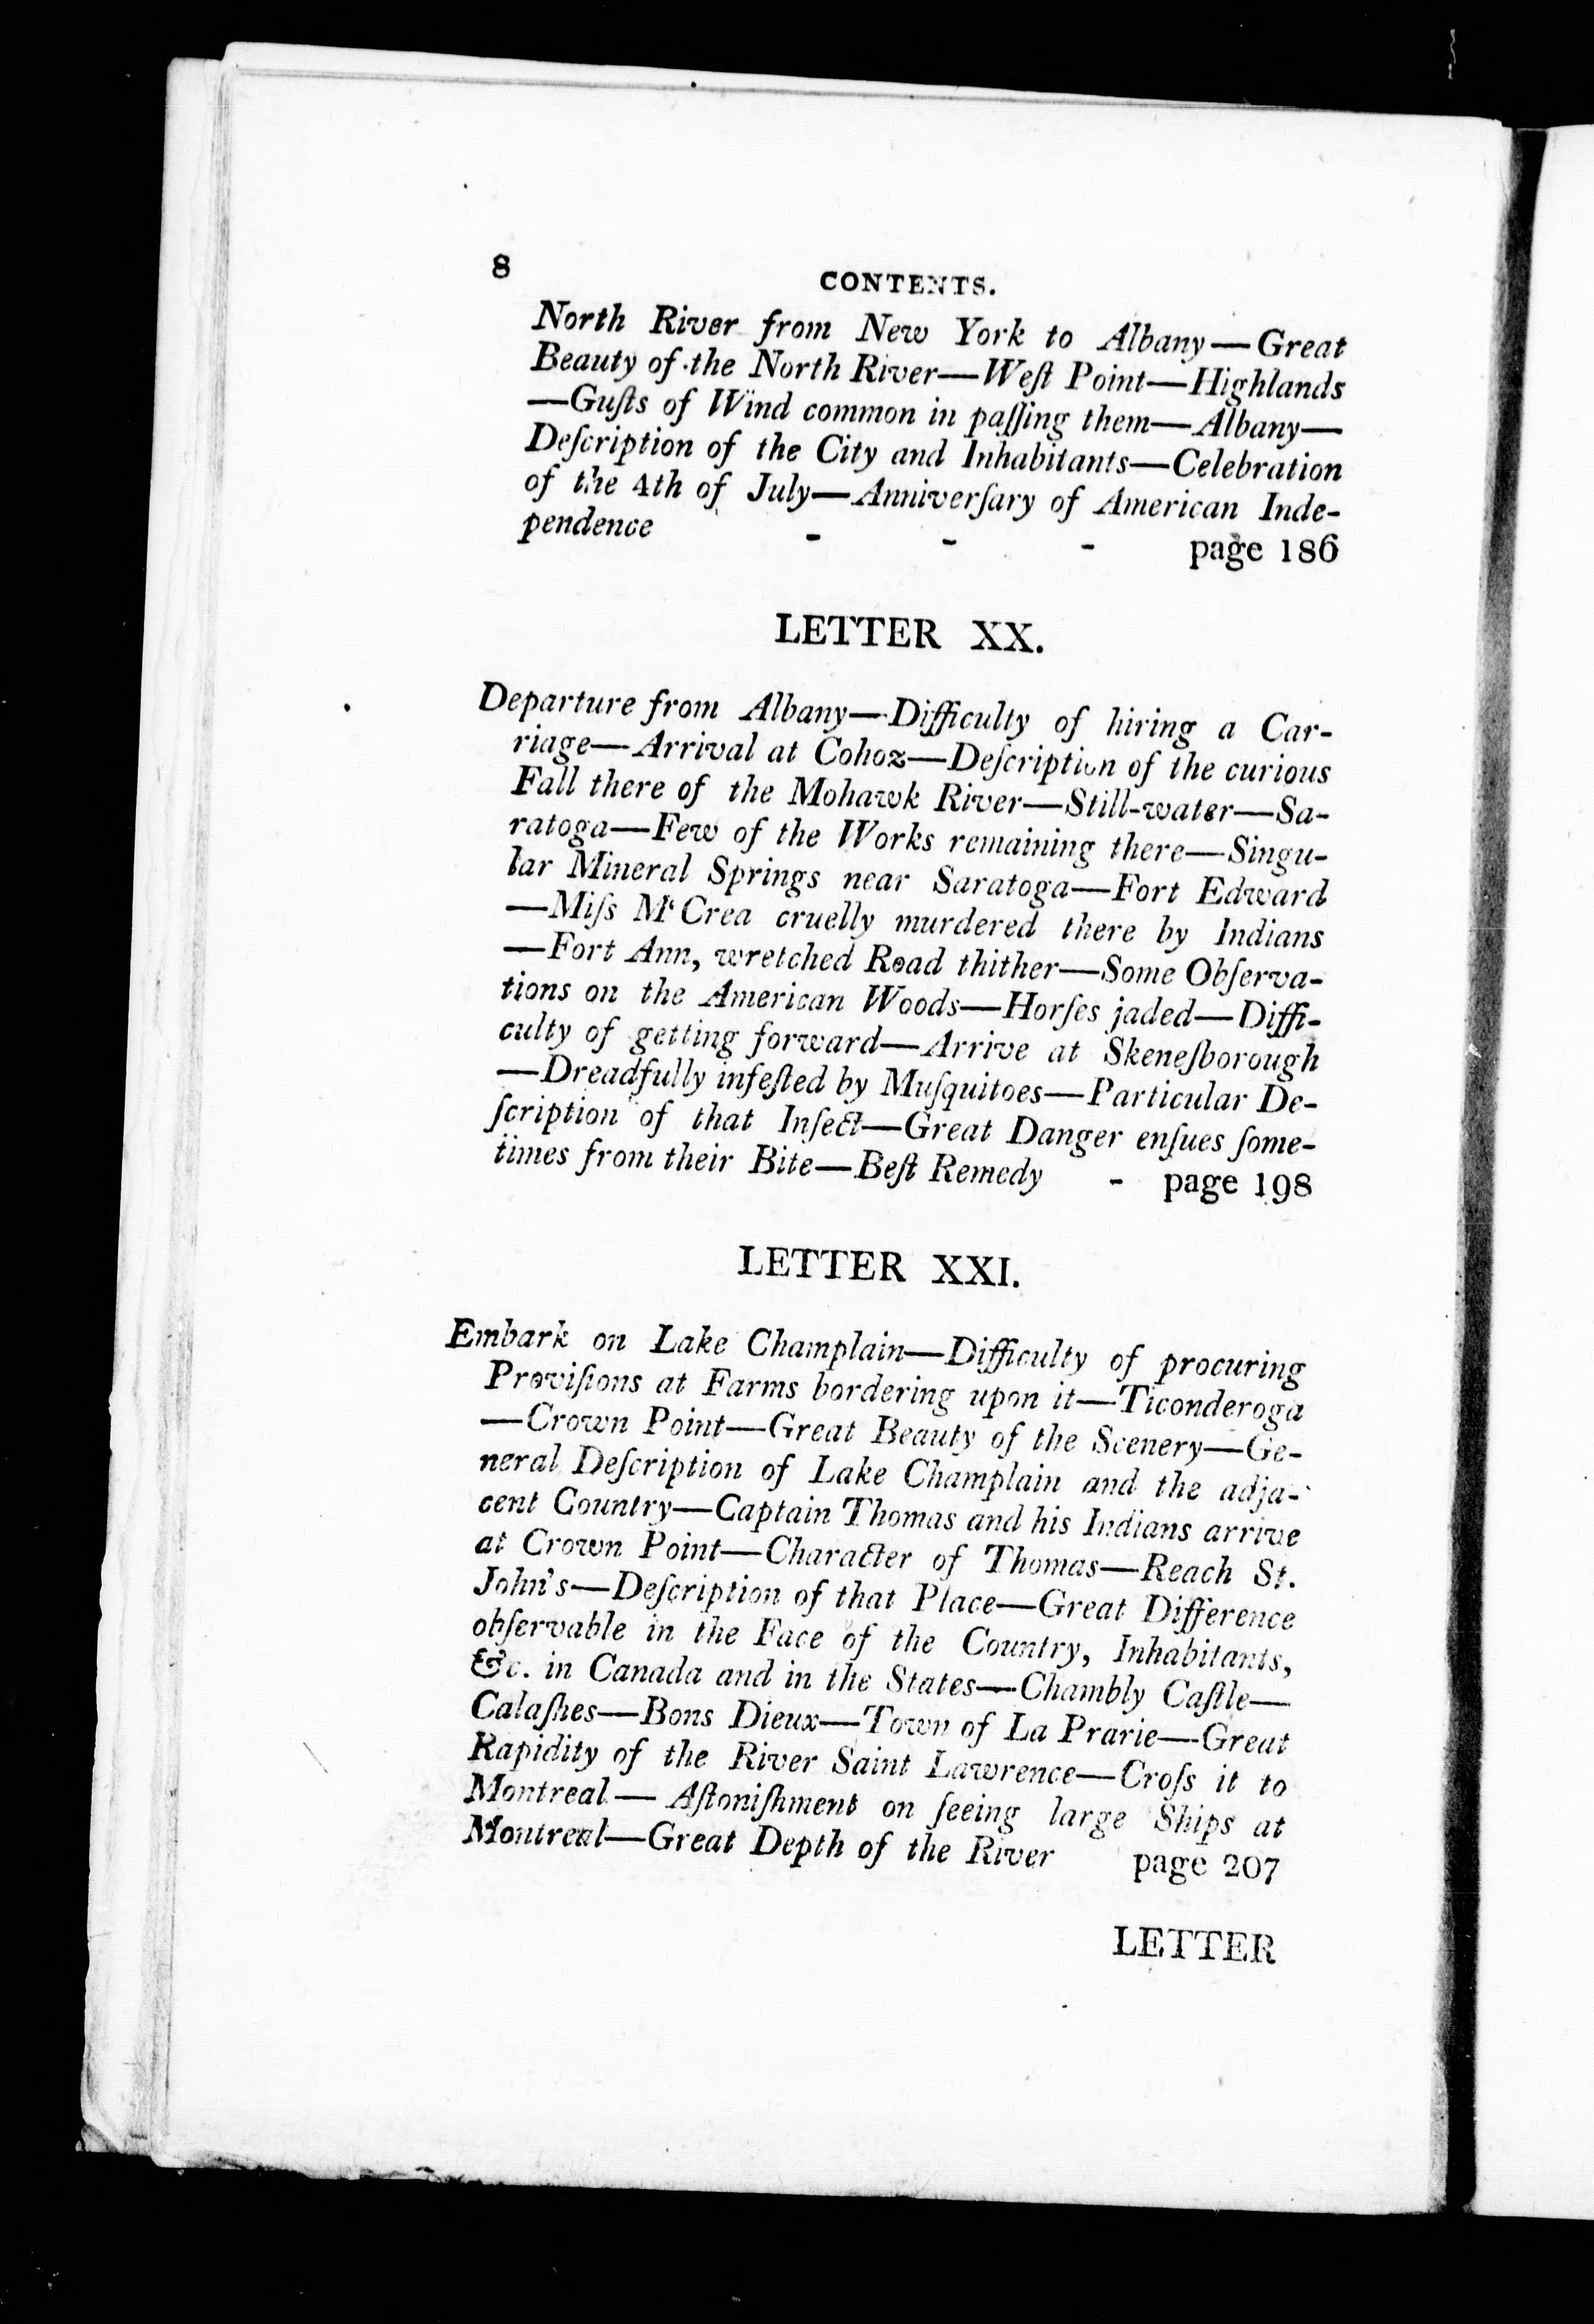 8
CONTENTS.
North River from New York to Albany—Great
Beauty of the North River—Weſt Point—Highlands
—Guſts of Wind common in paſſing them—Albany—
Deſcription of the City and Inhabitants—Celebration
of the 4th of July—Anniverſary of American Inde-
pendence - - - page 186
LETTER XX.
Departure from Albany—Difficulty of hiring a Car-
riage—Arrival at Cohoz—Deſcription of the curious
Fall there of the Mohawk River—Still-water—Sa-
ratoga—Few of the Works remaining there—Singu-
lar Mineral Springs near Saratoga—Fort Edward
—Miſs M‘Crea cruelly murdered there by Indians
—Fort Ann, wretched Road thither—Some Obſerva-
tions on the American Woods—Horſes jaded—Diffi-
culty of getting forward—Arrive at Skeneſborough
—Dreadfully infeſted by Muſquitoes—Particular De-
ſcription of that Inſect—Great Danger enſues ſome-
times from their Bite—Beſt Remedy - page 198
LETTER XXI.
Embark on Lake Champlain—Difficulty of procuring
Proviſions at Farms bordering upon it—Ticonderoga
—Crown Point—Great Beauty of the Scenery—Ge-
neral Deſcription of Lake Champlain and the adja-
cent Country—Captain Thomas and his Indians arrive
at Crown Point—Character of Thomas—Reach St.
John's—Deſcription of that Place—Great Difference
obſervable in the Face of the Country, Inhabitants,
&c. in Canada and in the States—Chambly Caſtle—
Calaſhes—Bons Dieux—Town of La Prarie—Great
Rapidity of the River Saint Lawrence—Croſs it to
Montreal—Aſtoniſhment on ſeeing large Ships at
Montreal—Great Depth of the River page 207
LETTER